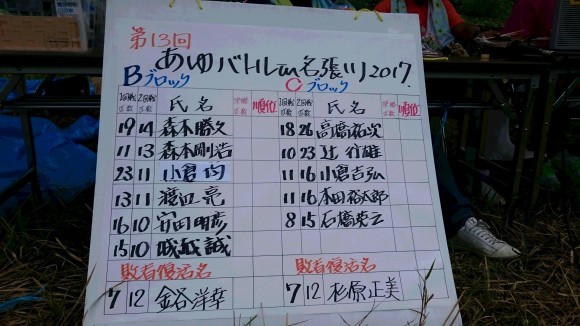 第13回
あゆバトルin名張川2017.
Bブロック
Cブロック
1回戦 2回戦 氏名 順位
1回戦 2回戦 氏名 順位
19 14 森本勝久
18 26 高橋祐次
11 13 森本剛浩
10 23 辻 行雄
23 11 小倉 均
11 16 小倉吉弘
13 11 渡辺 亮
11 16 本田裕太郎
16 10 安田明彦
8 15 石橋英立
15 10 城越 誠
敗者復活名
敗者復活名
7 12 金谷洋幸
7 12 杉原正美